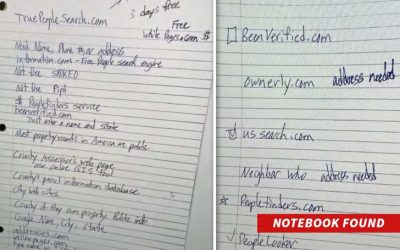 TruePeopleSearch.com
3 days free
Free
White Pages.com $
Need Name, Phone # or address
information.com - Free People search engine
Not the SPOKEO
Not the Pipl
$ Peoplefinders service
beenverified.com
Just enter a name and state
Most property records in America are public
County Assessor's web page
use online G.I.S tool
County's parcel information database
city web sites
County if they own property
Google Name, City, state
addresses.com
yellow pages.com
BeenVerified.com
ownerly.com address needed
us search.com
Neighbor who address needed
Peoplefinders.com
NOTEBOOK FOUND
PeopleLooker